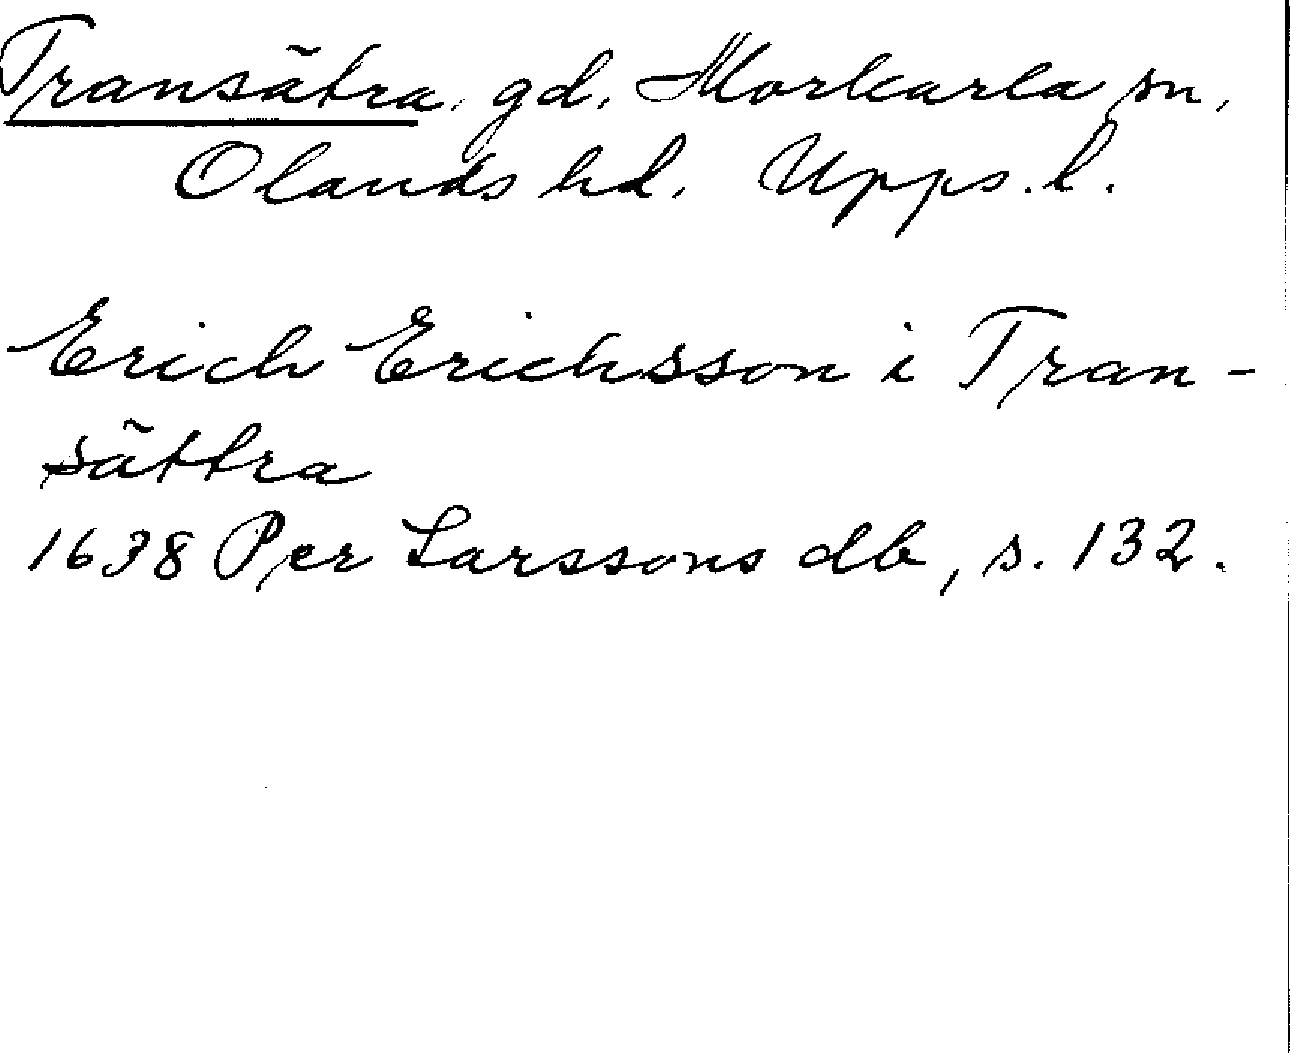 Transätra, gd. Morkarla sn,
Olands hd. Upps. l.
Erich Erichsson i Tran-
sättra
1638 Per Larssons db, s. 132.